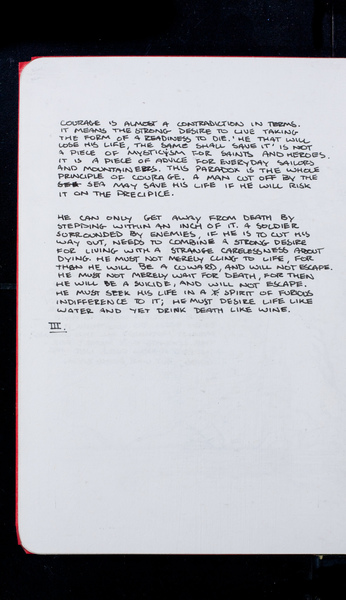 COURAGE IS ALMOST A CONTRADICTION IN TERMS.
IT MEANS THE STRONG DESIRE TO LIVE TAKING
THE FORM OF A READINESS TO DIE. 'HE THAT WILL
LOSE HIS LIFE, THE SAME SHALL SAVE IT' IS NOT
A PIECE OF MYSTICISM FOR SAINTS AND HEROES.
IT IS A PIECE OF ADVICE FOR EVERYDAY SAILORS
AND MOUNTAINEERS. THIS PARADOX IS THE WHOLE
PRINCIPLE OF COURAGE. A MAN CUT OFF BY THE
SEA MAY SAVE HIS LIFE IF HE WILL RISK
IT ON THE PRECIPICE.
HE CAN ONLY GET AWAY FROM DEATH BY
STEPPING WITHIN AN INCH OF IT. A SOLDIER
SURROUNDED BY ENEMIES, IF HE IS TO CUT HIS
WAY OUT, NEEDS TO COMBINE A STRONG DESIRE
FOR LIVING WITH A STRANGE CARELESSNESS ABOUT
DYING. HE MUST NOT MERELY CLING TO LIFE, FOR
THEN HE WILL BE A COWARD, AND WILL NOT ESCAPE.
HE MUST NOT MERELY WAIT FOR DEATH, FOR THEN
HE WILL BE A SUICIDE, AND WILL NOT ESCAPE.
HE MUST SEEK HIS LIFE IN A SPIRIT OF FURIOUS
INDIFFERENCE TO IT; HE MUST DESIRE LIFE LIKE
WATER AND YET DRINK DEATH LIKE WINE.
III.